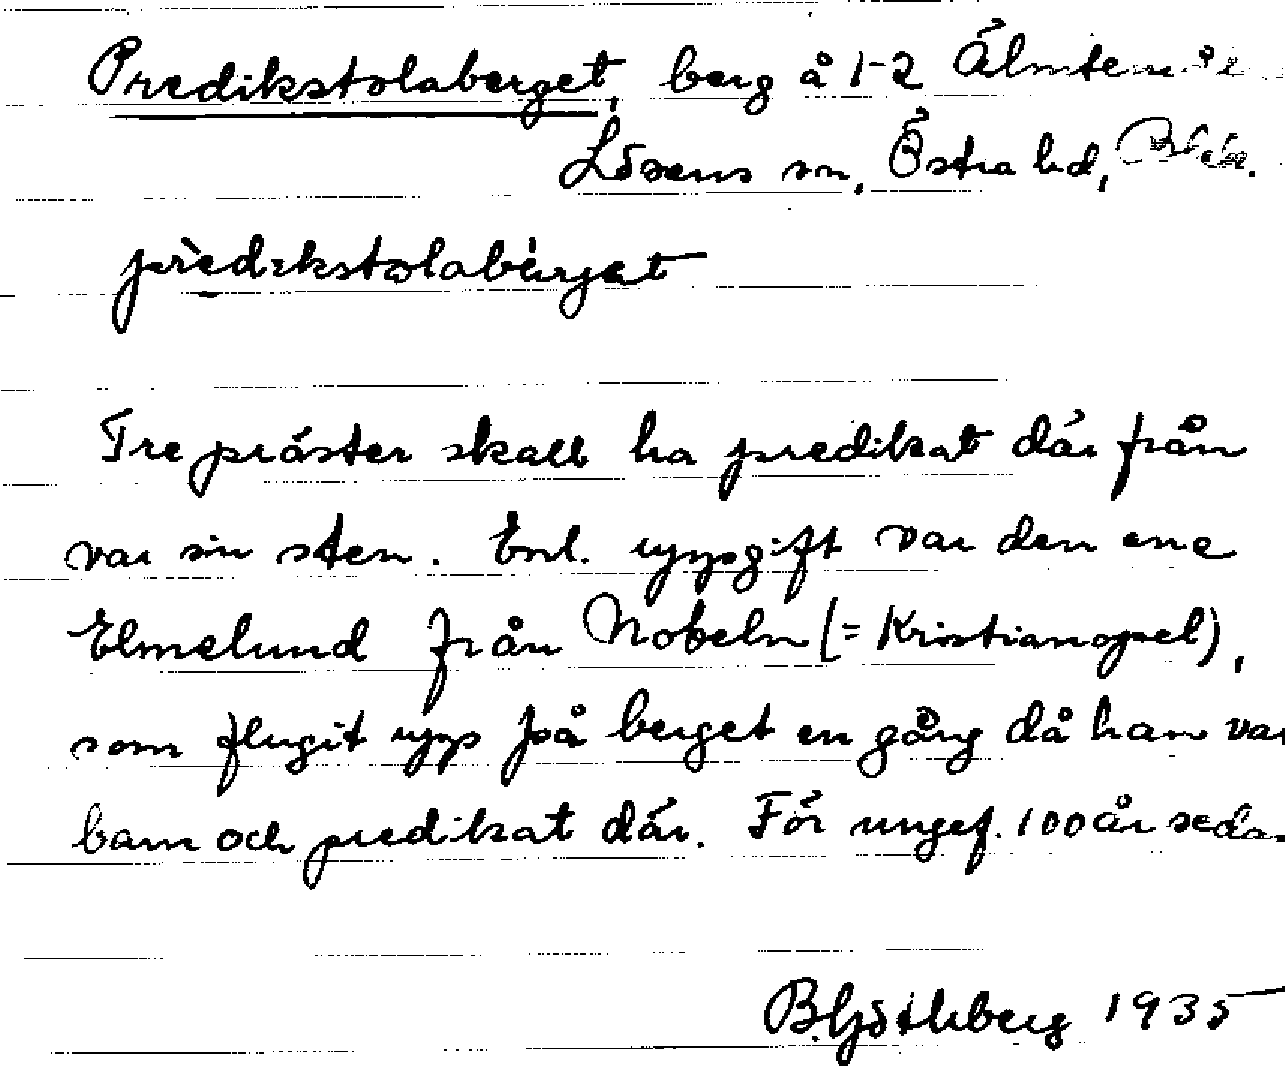 Predikstolaberget, berg å 1-2
Lösens sn, Östra hd,
prèdikstolabärjet
Tre präster skall ha predikat där från
var sin sten. Enl. uppgift var den ene
Elmelund från Nobeln (= Kristianopel),
som flugit upp på berget en gång då han var
barn och predikat där. För ungef. 100 år sedan
B. Göthberg 1935